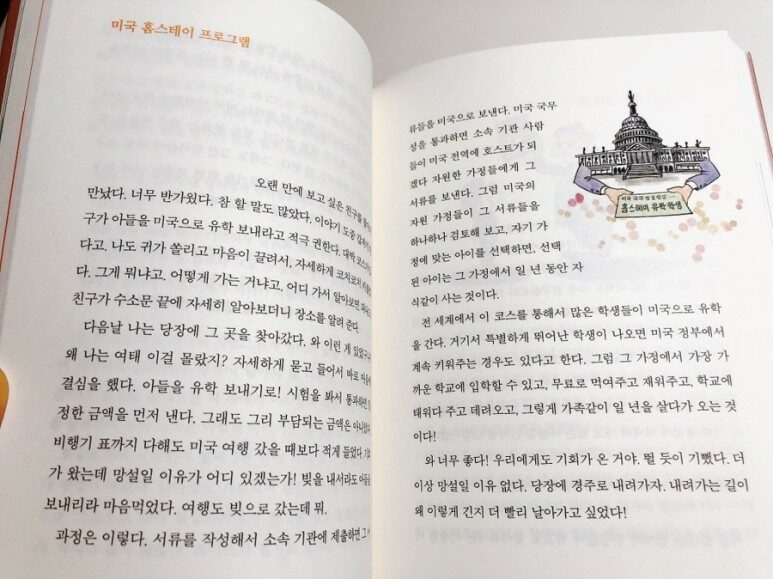 미국 홈스테이 프로그램
오랜 만에 보고 싶은 친구를
만났다. 너무 반가웠다. 참 할 말도 많았다. 이야기 도중
구가 아들을 미국으로 유학 보내라고 적극 권한다. 대박
다고. 나도 귀가 쏠리고 마음이 끌려서, 자세하게 코치코치
다. 그게 뭐냐고. 어떻게 가는 거냐고. 어디 가서 알아보면
친구가 수소문 끝에 자세히 알아보더니 장소를 알려 준다.
다음날 나는 당장에 그 곳을 찾아갔다. 와 이런 게
왜 나는 여태 이걸 몰랐지? 자세하게 묻고 들어서 바로
결심을 했다. 아들을 유학 보내기로! 시험을 봐서 통과하면
정한 금액을 먼저 낸다. 그래도 그리 부담되는 금액은
비행기 표까지 다해도 미국 여행 갔을 때보다 적게 들었다.
가 왔는데 망설일 이유가 어디 있겠는가! 빚을 내서라도
보내리라 마음먹었다. 여행도 빚으로 갔는데 뭐.
과정은 이렇다. 서류를 작성해서 소속 기관에 제출하면
류들을 미국으로 보낸다. 미국 국무
성을 통과하면 소속 기관 사람
들이 미국 전역에 호스트가 되
겠다 자원한 가정들에게 그
서류를 보낸다. 그럼 미국의
자원 가정들이 그 서류들을
하나하나 검토해 보고, 자기 가
정에 맞는 아이를 선택하면, 선택
된 아이는 그 가정에서 일 년 동안 자
식같이 사는 것이다.
전 세계에서 이 코스를 통해서 많은 학생들이 미국으로 유학
을 간다. 거기서 특별하게 뛰어난 학생이 나오면 미국 정부에서
계속 키워주는 경우도 있다고 한다. 그럼 그 가정에서 가장 가
까운 학교에 입학할 수 있고, 무료로 먹여주고 재워주고, 학교에
태워다 주고 데려오고, 그렇게 가족같이 일 년을 살다가 오는 것
이다!
와 너무 좋다! 우리에게도 기회가 온 거야. 뛸 듯이 기뻤다. 더
이상 망설일 이유 없다. 당장에 경주로 내려가자. 내려가는 길이
왜 이렇게 긴지 더 빨리 날아가고 싶었다!
홈스테이 유학 학생